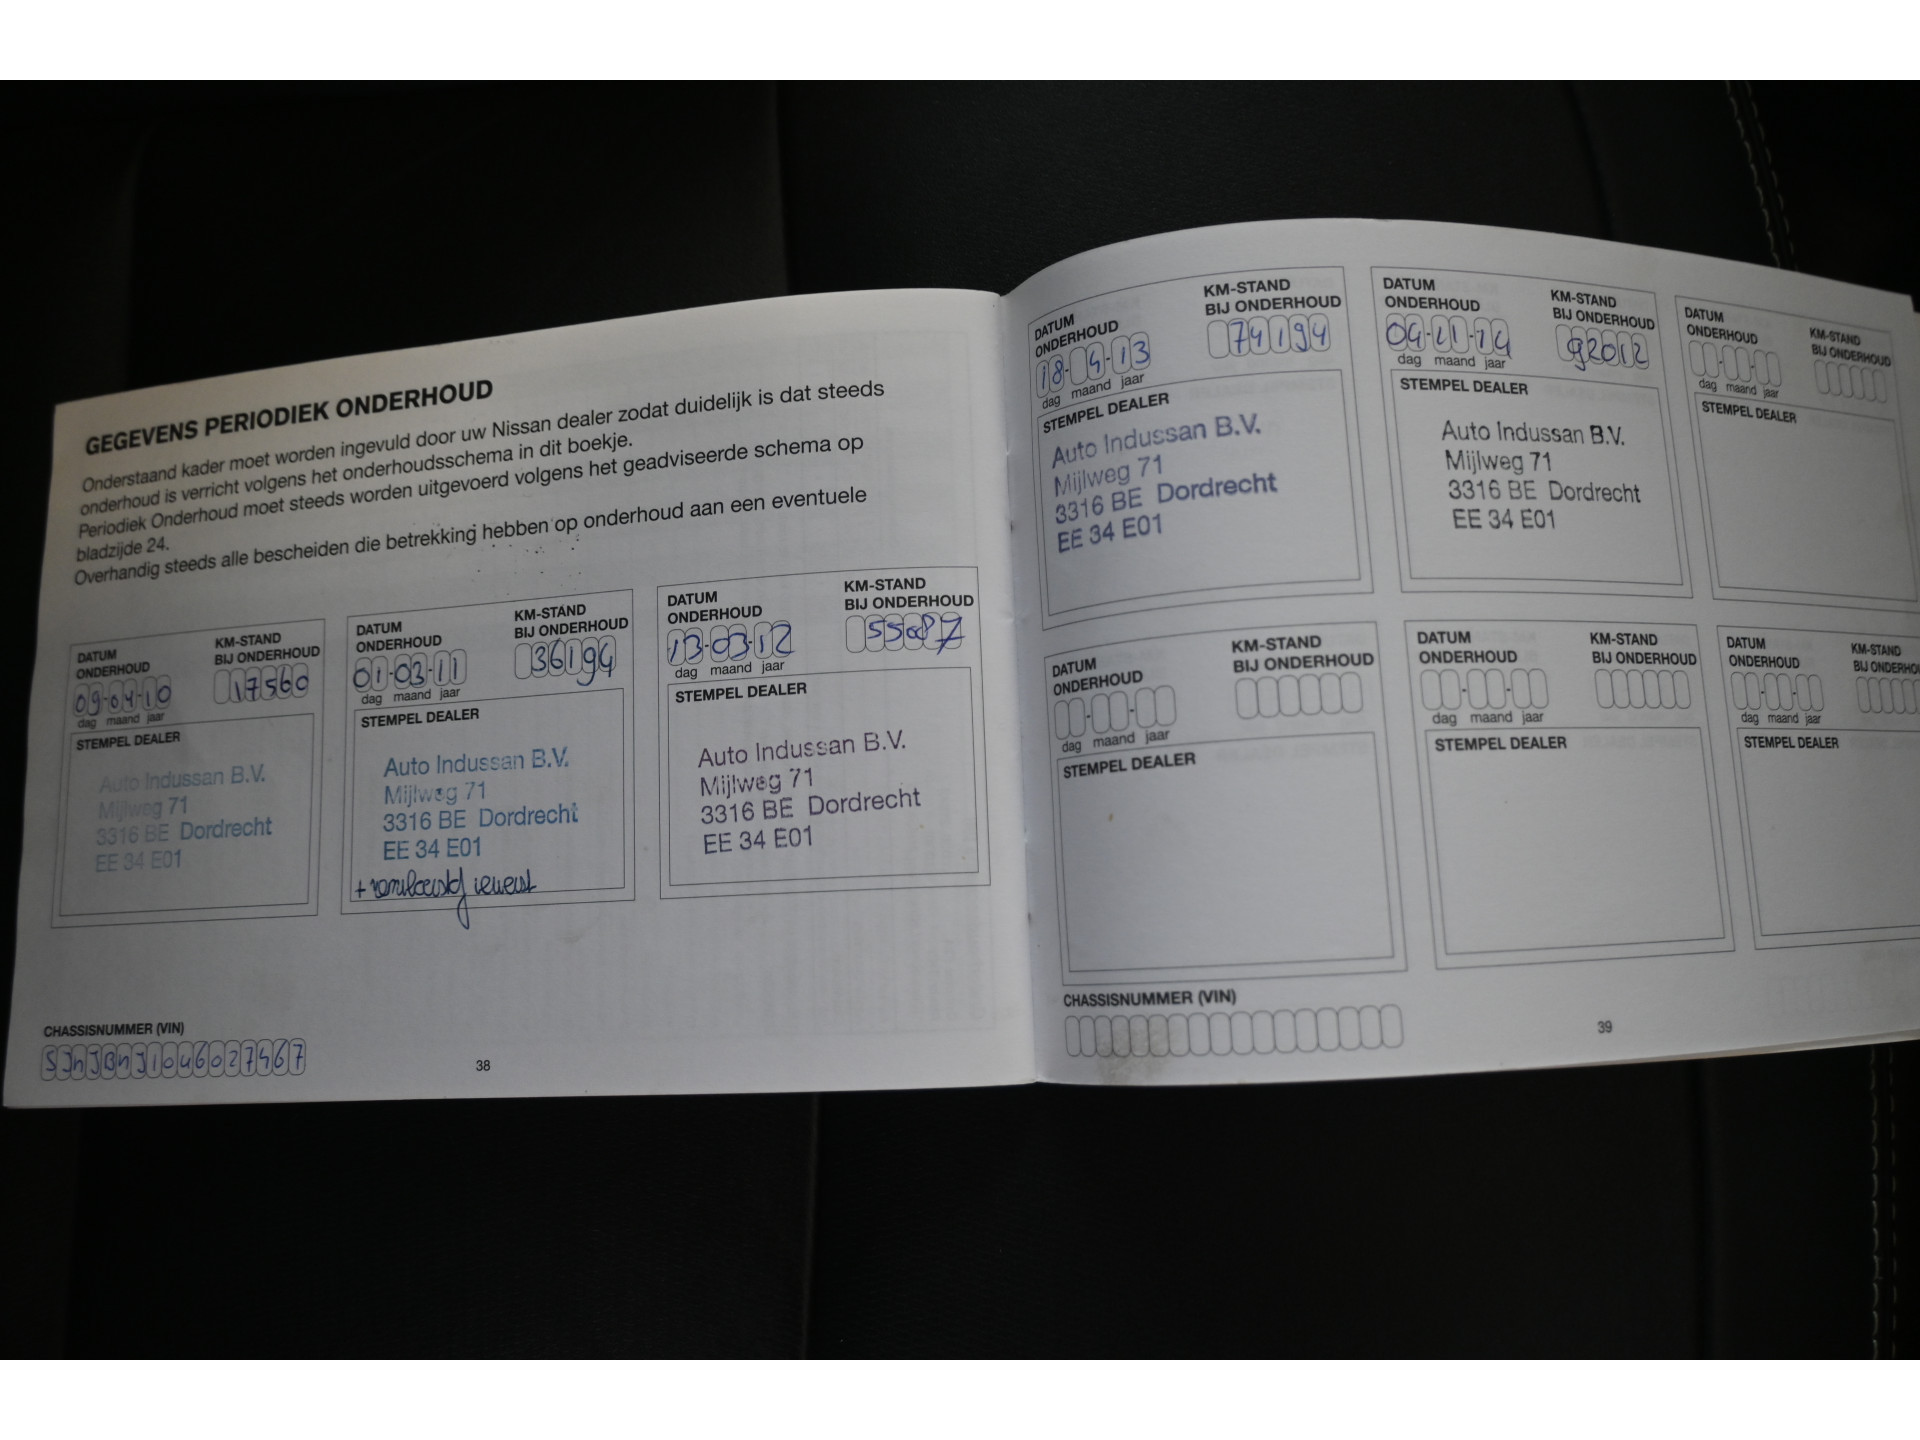 GEGEVENS PERIODIEK ONDERHOUD
Onderstaand kader moet worden ingevuld door uw Nissan dealer zodat duidelijk is dat steeds
onderhoud is verricht volgens het onderhoudsschema in dit boekje.
Periodiek Onderhoud moet steeds worden uitgevoerd volgens het geadviseerde schema op
bladzijde 24.
Overhandig steeds alle bescheiden die betrekking hebben op onderhoud aan een eventuele
DATUM
ONDERHOUD
09-04-10
dag maand jaar
KM-STAND
BIJ ONDERHOUD
17560
STEMPEL DEALER
Auto Indussan B.V.
Mijlweg 71
3316 BE Dordrecht
EE 34 E01
DATUM
ONDERHOUD
01-03-11
dag maand jaar
KM-STAND
BIJ ONDERHOUD
36194
STEMPEL DEALER
Auto Indussan B.V.
Mijlweg 71
3316 BE Dordrecht
EE 34 E01
+ remvloeistof ververst
DATUM
ONDERHOUD
13-03-12
dag maand jaar
KM-STAND
BIJ ONDERHOUD
55687
STEMPEL DEALER
Auto Indussan B.V.
Mijlweg 71
3316 BE Dordrecht
EE 34 E01
CHASSISNUMMER (VIN)
SJNJBNJ10U6027467
38
DATUM
ONDERHOUD
18-4-13
dag maand jaar
KM-STAND
BIJ ONDERHOUD
74194
STEMPEL DEALER
Auto Indussan B.V.
Mijlweg 71
3316 BE Dordrecht
EE 34 E01
DATUM
ONDERHOUD
04-11-14
dag maand jaar
KM-STAND
BIJ ONDERHOUD
92012
STEMPEL DEALER
Auto Indussan B.V.
Mijlweg 71
3316 BE Dordrecht
EE 34 E01
DATUM
ONDERHOUD
dag maand jaar
KM-STAND
BIJ ONDERHOUD
STEMPEL DEALER
DATUM
ONDERHOUD
dag maand jaar
KM-STAND
BIJ ONDERHOUD
STEMPEL DEALER
DATUM
ONDERHOUD
dag maand jaar
KM-STAND
BIJ ONDERHOUD
STEMPEL DEALER
DATUM
ONDERHOUD
dag maand jaar
KM-STAND
BIJ ONDERHO
STEMPEL DEALER
CHASSISNUMMER (VIN)
39